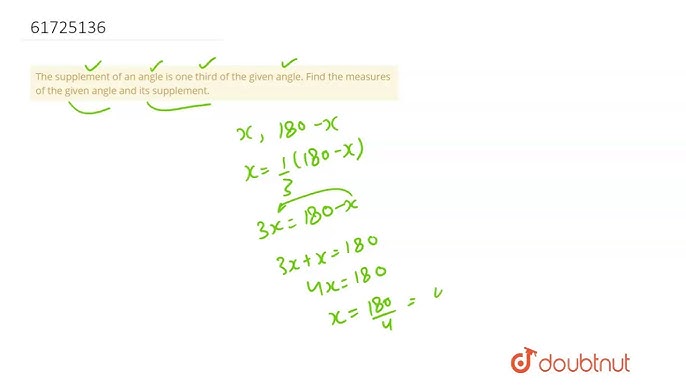 61725136
The supplement of an angle is one third of the given angle. Find the measures
of the given angle and its supplement.
x, 180-x
x = 1/3 (180-x)
3x = 180-x
3x+x = 180
4x = 180
x = 180/4 = 4
doubtnut